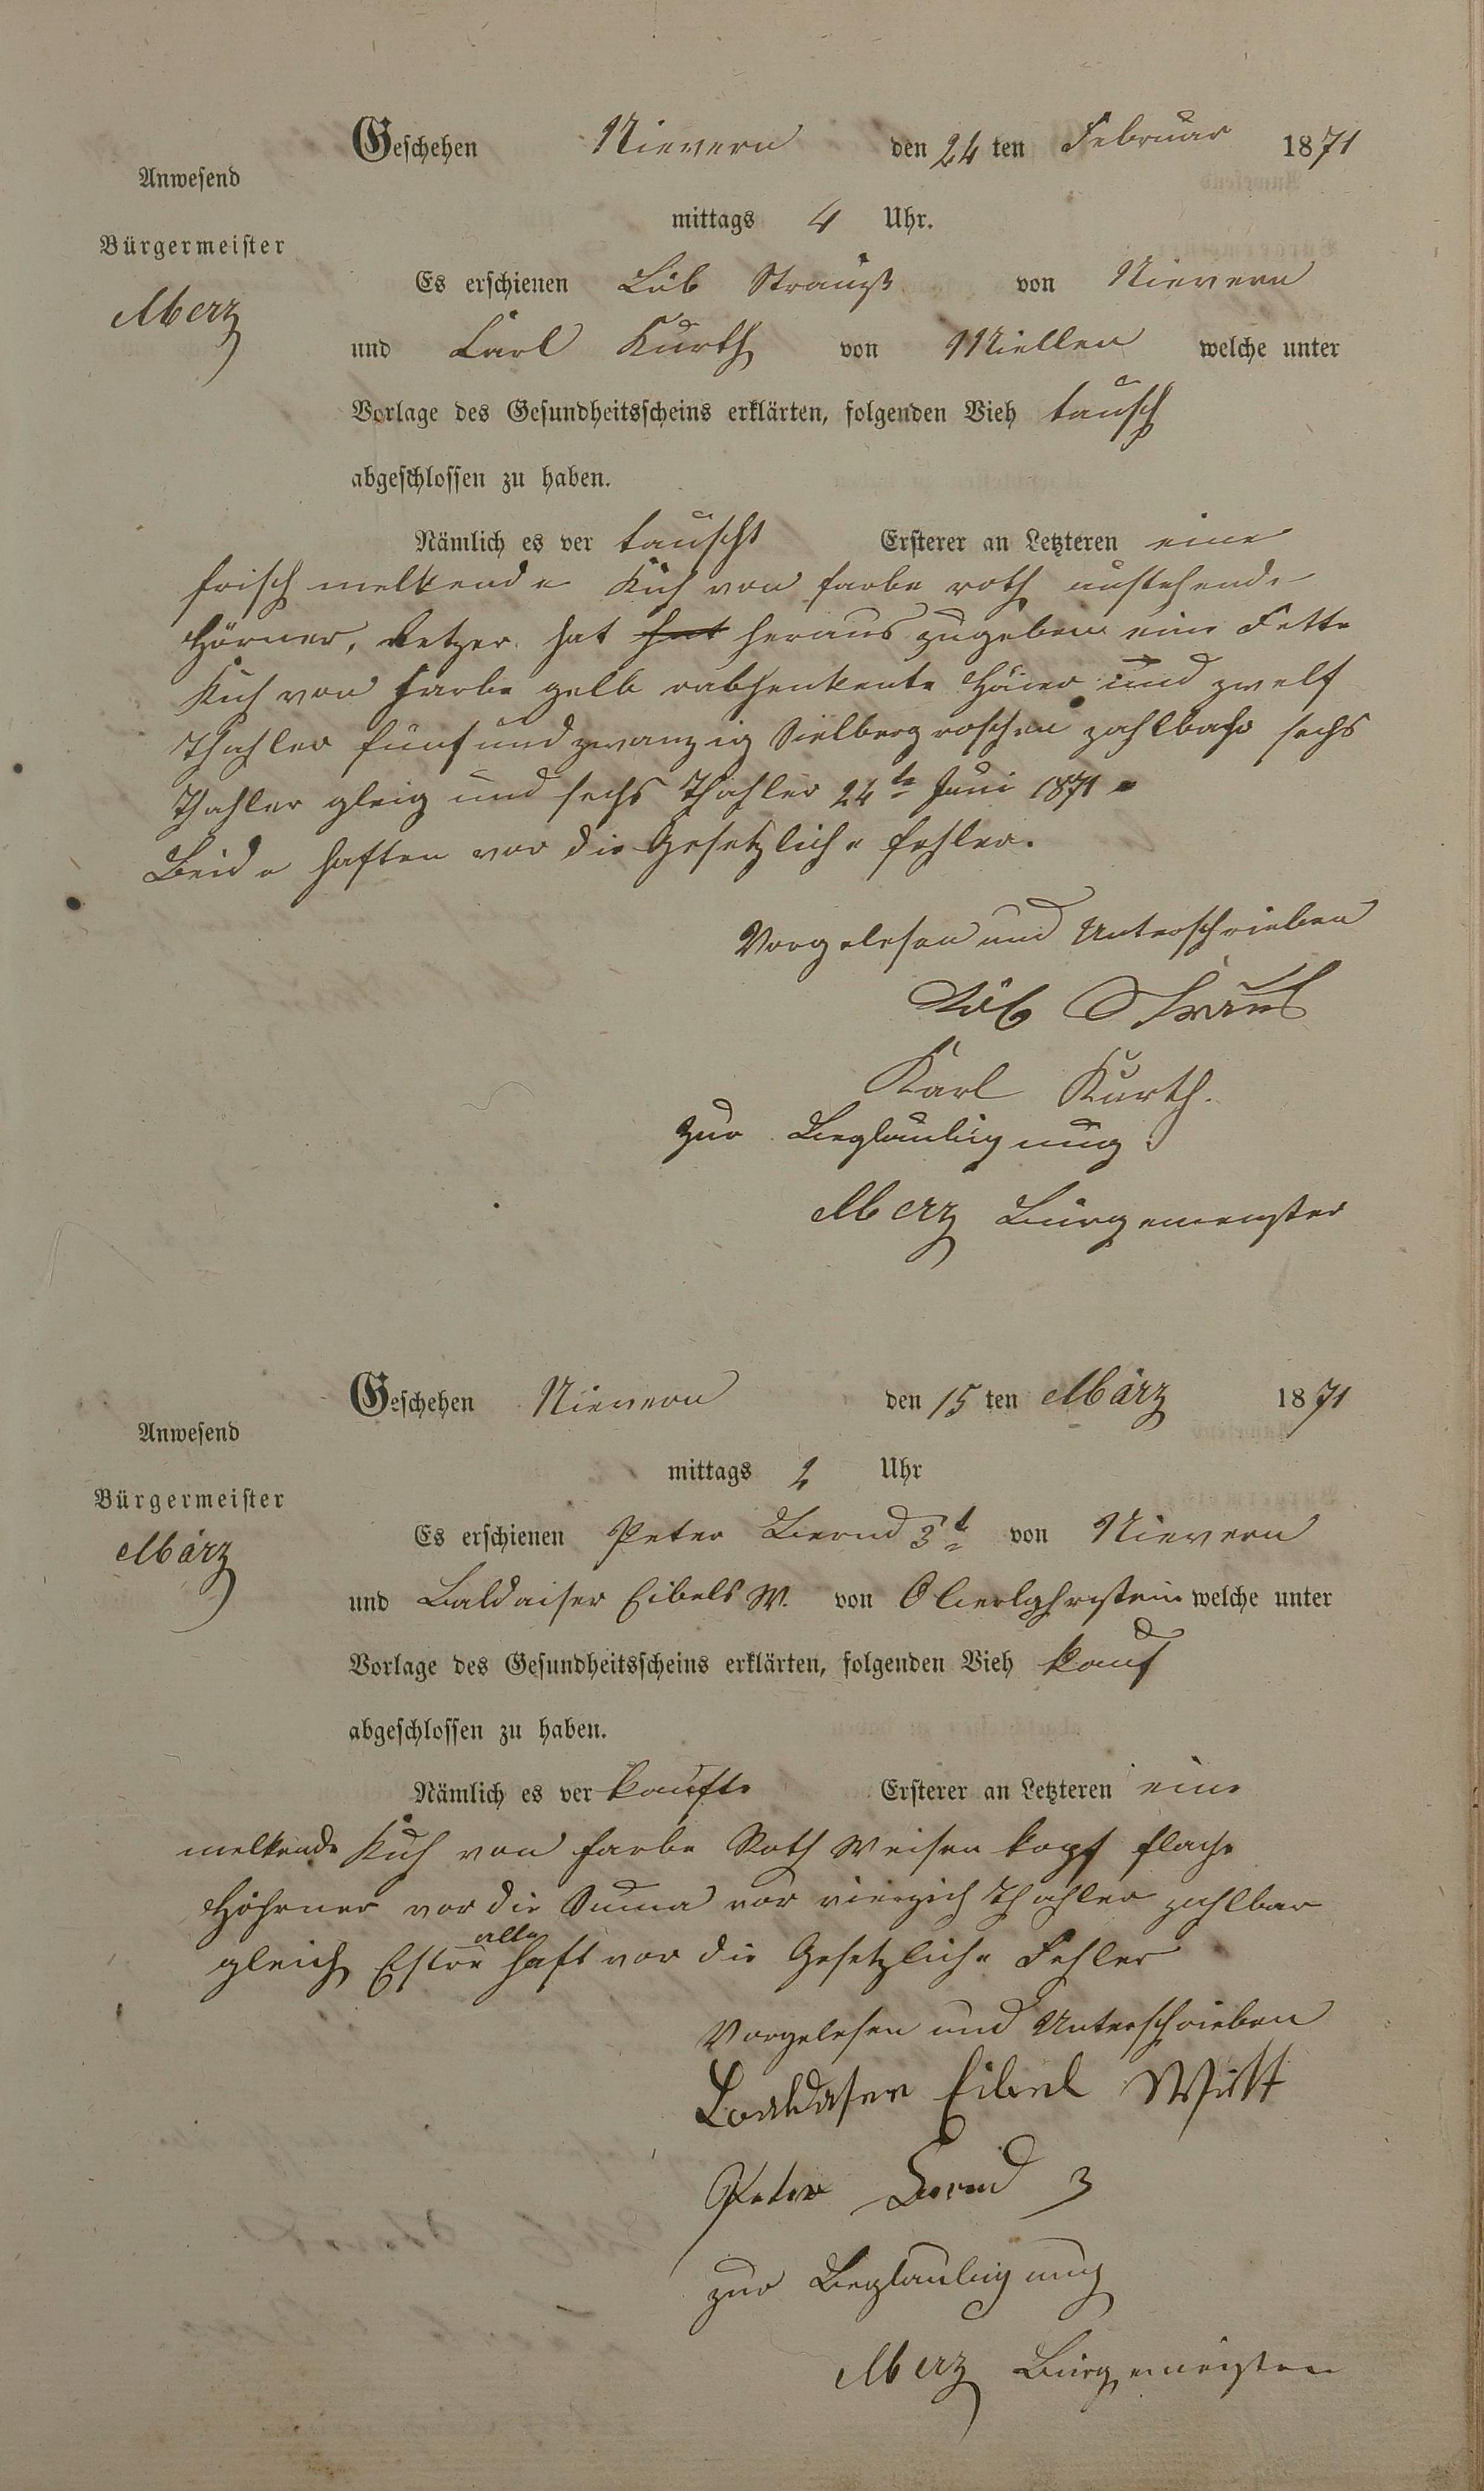 Geschehen Nievern den 24 ten Februar 1871
Anwesend
mittags 4 Uhr.
Bürgermeister
Merz
Es erschienen Löb Strauß von Nievern
und Carl Kurth von Miellen welche unter
Vorlage des Gesundheitsscheins erklärten, folgenden Vieh tausch
abgeschlossen zu haben.
Nämlich es ver tauscht Ersterer an Letzteren eine
frisch melkende Kuh von farbe roth aufstehende
Hörner, Letzer hat hat heraus zugeben eine Fette
Kuh von farbe gelb und zwelf
Thahler fünfundzwanzig Sielbergroschen zahlbahr sechs
Thahler gleig und sechs Thahler 24te Juni 1871
Beide haften vor die Gesetzliche fehler.
Vorgelesen und Unterschrieben
Löb Straus
Karl Kurth.
Zur Beglaubigung
Merz Bürgemeister
Geschehen Nievern den 15 ten März 1871
Anwesend
mittags 2 Uhr
Bürgermeister
März
Es erschienen Peter Bernd 3t von Nievern
und Baldaiser Eibels W. von Oberlahnstein welche unter
Vorlage des Gesundheitsscheins erklärten, folgenden Vieh kauf
abgeschlossen zu haben.
Nämlich es ver kaufte Ersterer an Letzteren eine
melkende Kuh von farbe Roth Weisen kopf flache
Höhrner vor die Suma vor vierzich Thahler zahlbar
gleich Estre haft vor alle die Gesetzliche Fehler
Vorgelesen und Unterschrieben
Baldaser Eibel Witt
Peter Bernd 3
zur Beglaubigung
Merz Bürgemeister